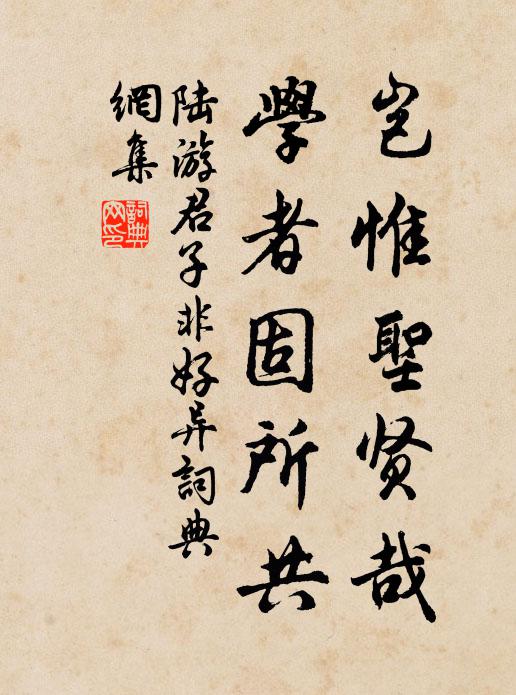 岂惟聖贤哉
學者固所共
陆游君子非好异詞典
網集
詞典
网印